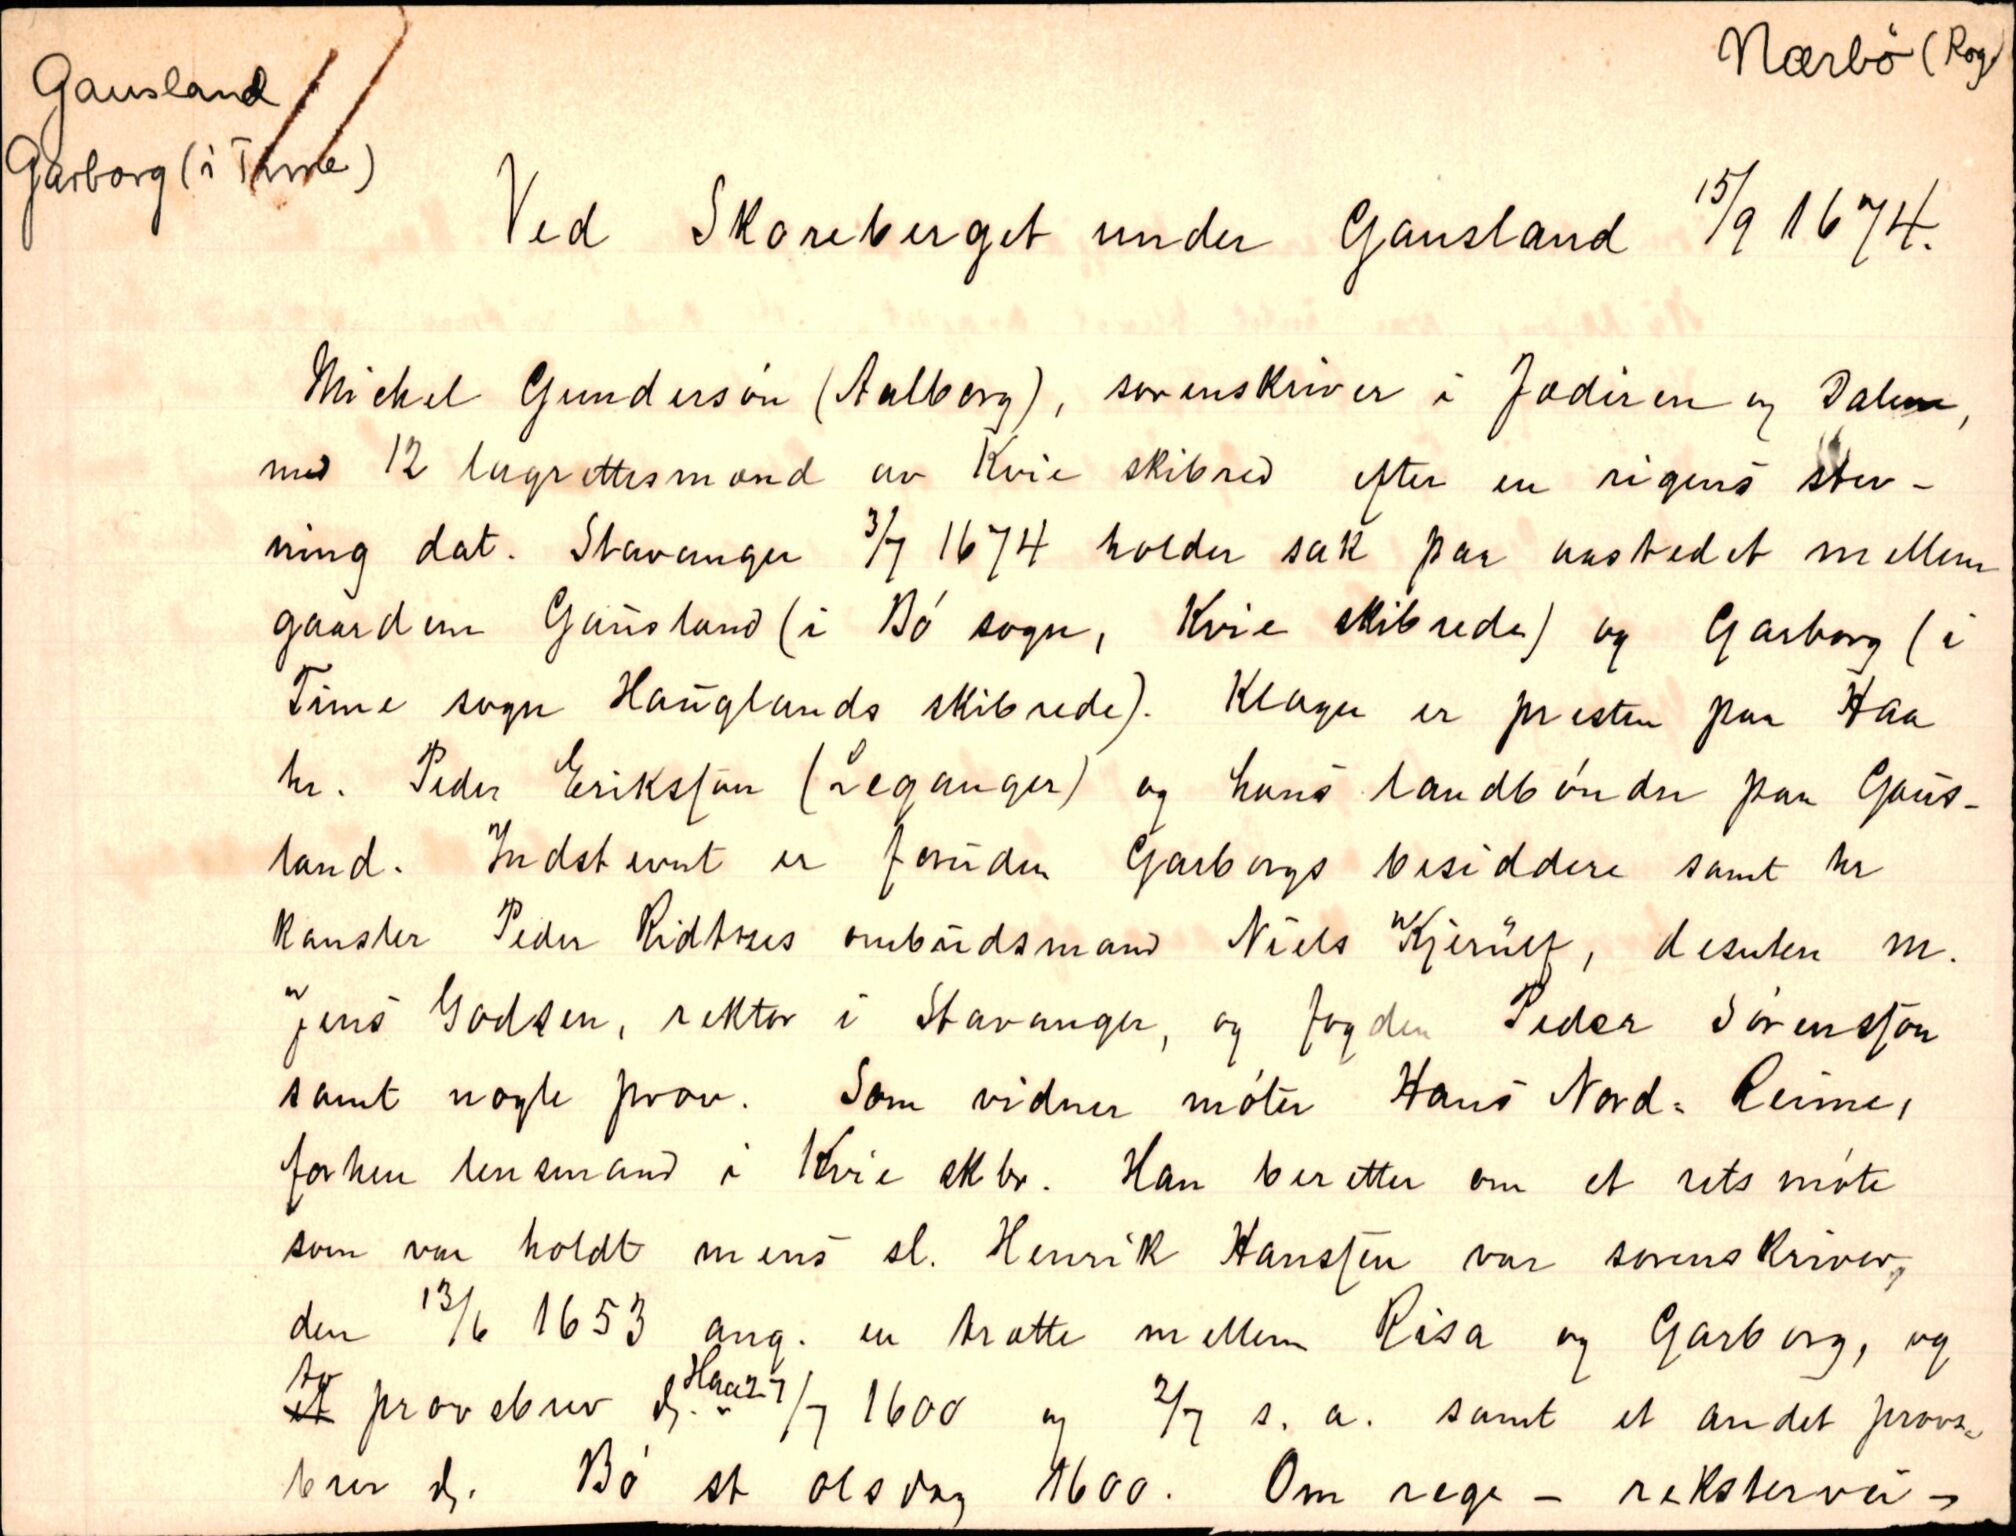 Gausland
Garborg (i Time)
Nærbö (Rog)
Ved Skoreberget under Gausland 15/9 1674.
Mickel Gundersön (Aalborg), sorenskriver i Jæderen og Dalene,
med 12 lagrettesmænd av Kvie skibred efter en rigens stev-
ning dat. Stavanger 3/7 1674 holder sak paa aastedet mellem
gaardene Gausland (i Bó sogn, Kvie skibrede) og Garborg (i
Time sogn Hauglands skibrede). Klager er presten paa Haa
hr. Peder Eriksson (Leganger) og hans landbönder paa Gaus-
land. Indstevnt er foruden Garborgs besiddere samt hr
kansler Peder Ridtzes ombudsmand Niels Kjerulf, desuten m.
Jens Godsen, rektor i Stavanger, og fogden Peder Sörensson
samt nogle prov. Som vidner möter Hans Nord-Reime,
forhen lensmand i Kvie skbr. Han beretter om et retsmöte
som var holdt mens sl. Henrik Hanssen var sorenskriver,
den 13/6 1653 ang. en trætte mellem Risa og Garborg, og
to provsbrev d. Haa 27/7 1600 og 2/7 s. a. samt et andet provs-
brev d. Bó st olsdag 1600. Om rege - rekstervei -